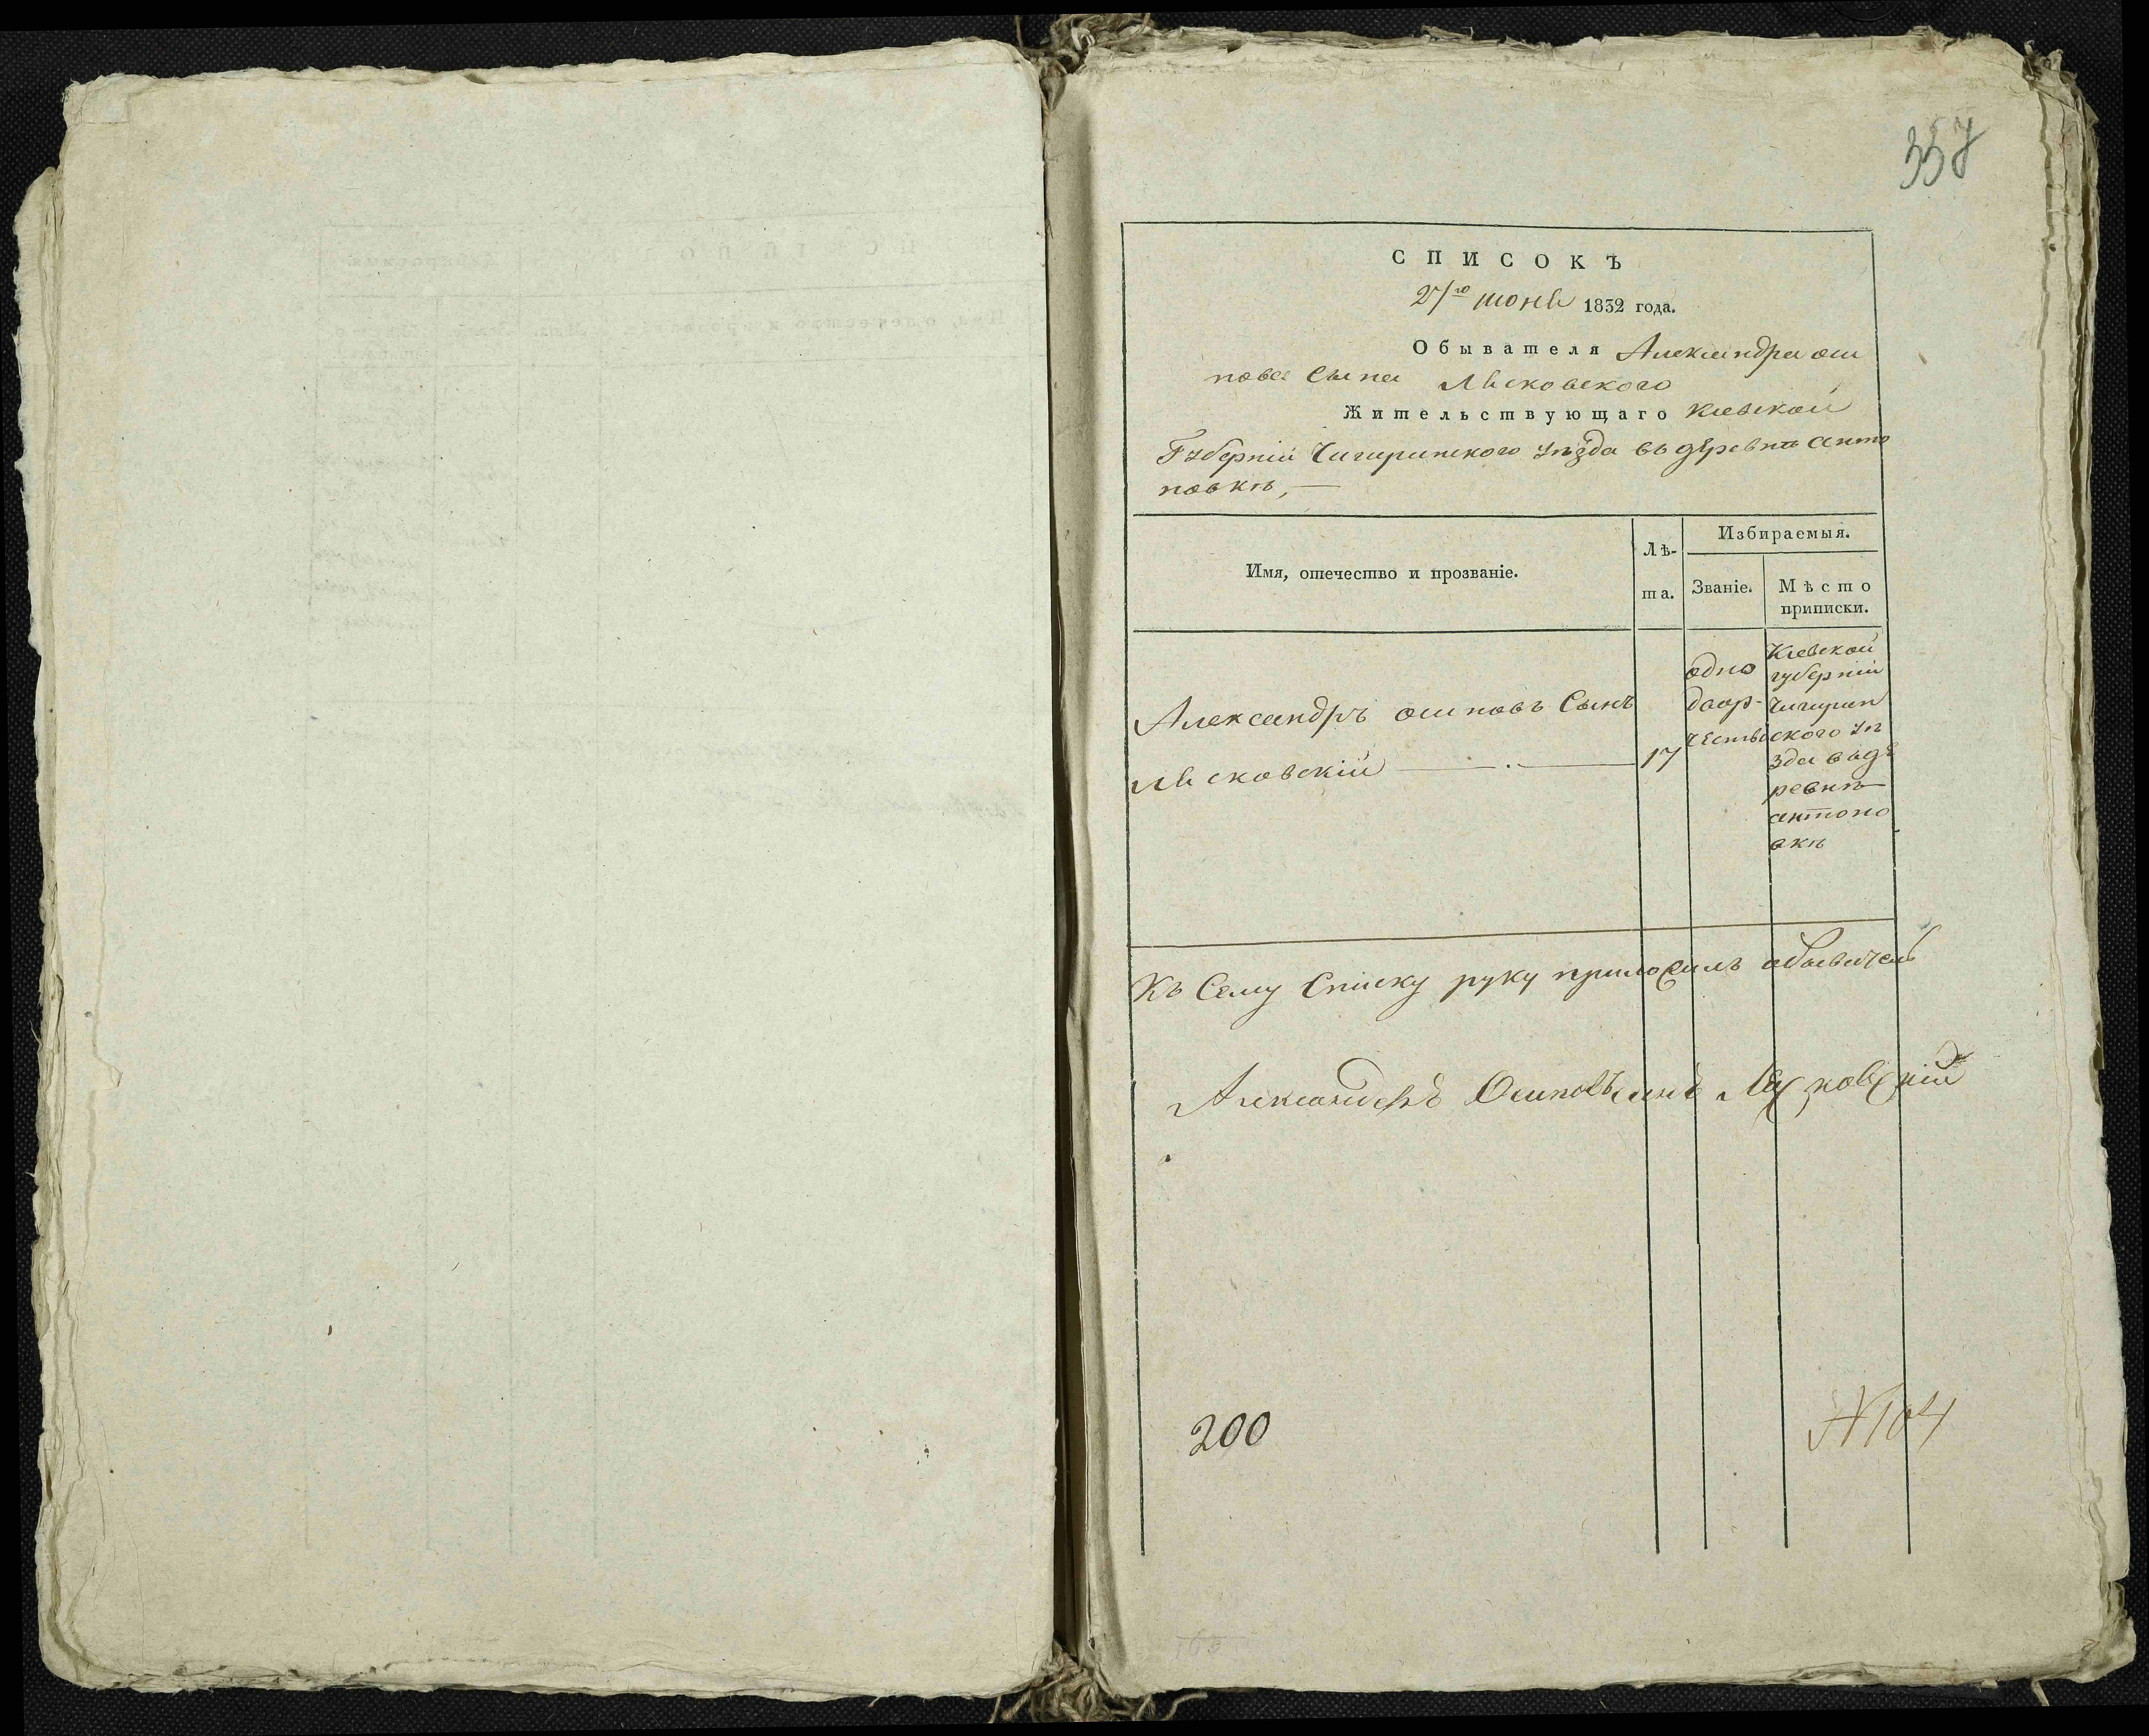 337
СПИСОКЪ
27го июня 1832 года.
Обывателя Александра оси
пова сына Лисковского
Жительствующаго киевской
Губерніи Чигиринского уѣзда въ деревнѣ анто
новкѣ,
Имя, отечество и прозваніе.
Лѣ-
та.
Избираемыя.
Званіе.
Мѣсто
приписки.
Александръ осиповъ Сынъ
Лисковскій
17
одно
двор-
чество
Киевской
губерніи
Чигирин
ского уѣ
зда въ де
ревнѣ
антоно
вкѣ
Къ Сему Списку руку приложилъ обыватель
Александеръ Осиповъ синъ Лисковскій
200
N 104